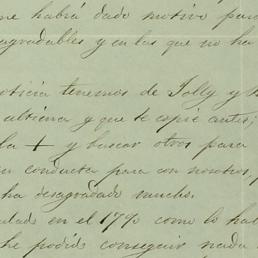 me habrá dado motivo para
agradables y en las que no ha
noticia tenemos de Jolly y
ultima y que te copié antes;
la + y buscar otros para
su conducta para con nosotros, y
ha desagradado mucho.
en el 1770 como lo ha
he podido conseguir nada